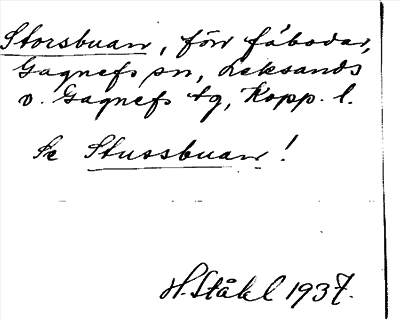 Storsbuan, förr fäbodar,
Gagnefs sn, Leksands
o. Gagnefs tg, Kopp. l.
Se Stussbuan!
H. Ståhl 1937.